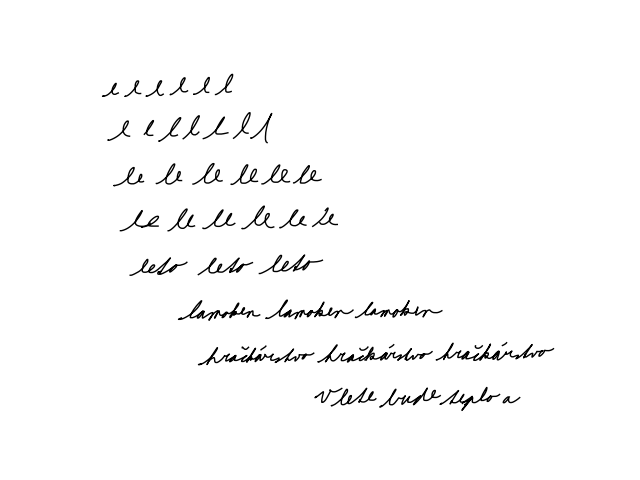 l l l l l l
l l l l l l l
le le le le le le
le le le le le le
leto leto leto
lamoken lamoken lamoken
hračkárstvo hračkárstvo hračkárstvo
V lete bude teplo a